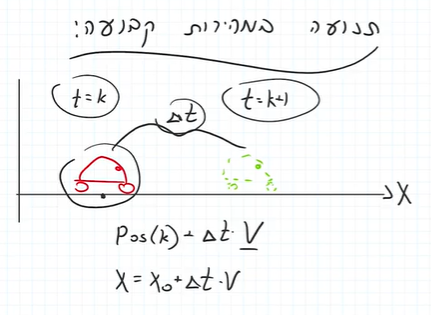 תנועה במהירות קבועה:
t=k
Δt
t=k+1
X
Pos(k)+Δt·V
X=X₀+Δt·V